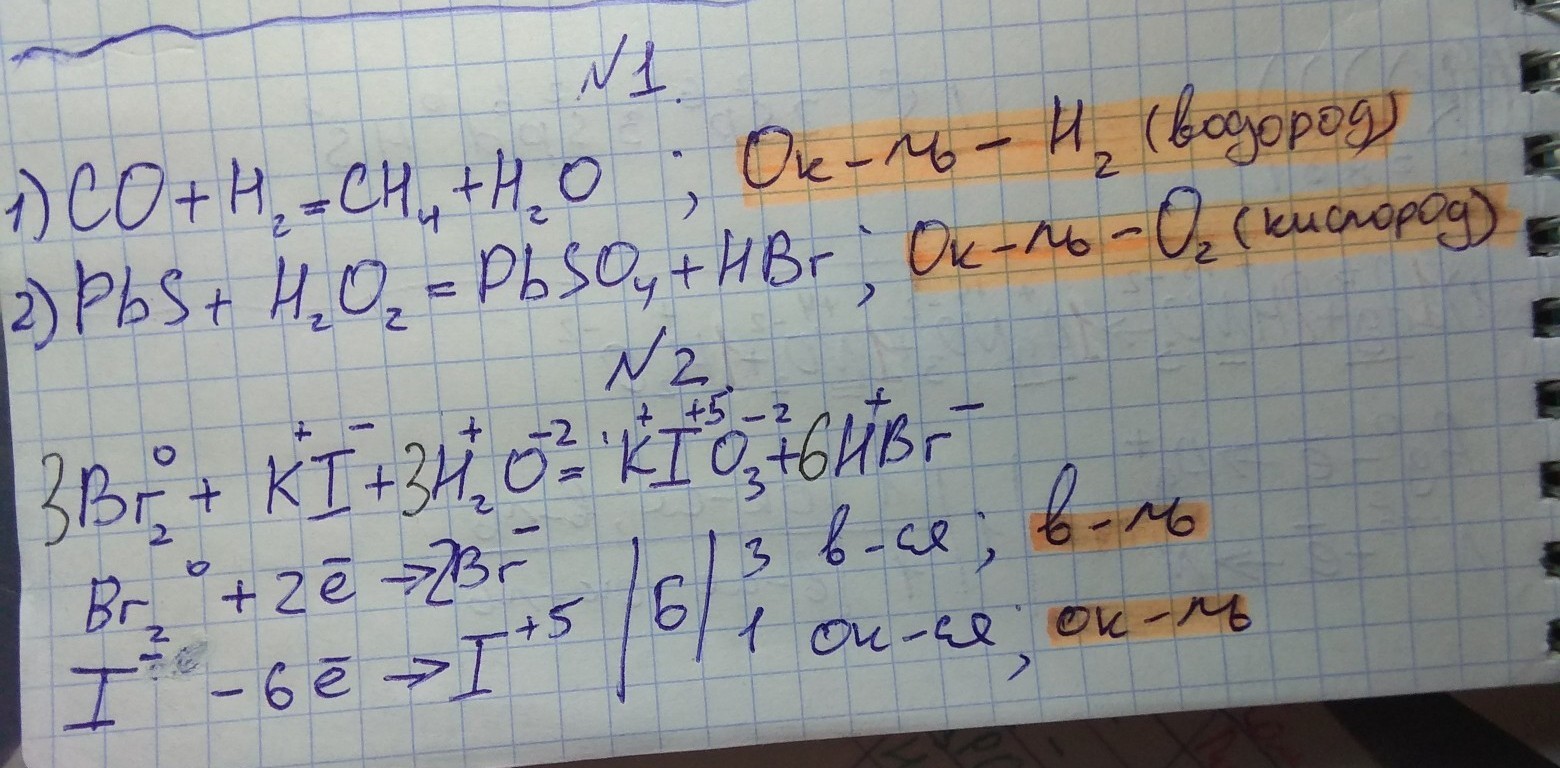 №1.
1) CO + H₂ = CH₄ + H₂O ; Ок-ль - H₂ (водород)
2) PbS + H₂O₂ = PbSO₄ + HBr ; Ок-ль - O₂ (кислород)
№2.
3Br₂⁰ + K⁺I⁻ + 3H₂⁺O⁻² = K⁺I⁺⁵O₃⁻² + 6H⁺Br⁻
Br₂⁰ + 2ē → 2Br⁻ | 6 | 3 в-ся ; в-ль
I⁻ - 6ē → I⁺⁵ | | 1 ок-ся ; ок-ль